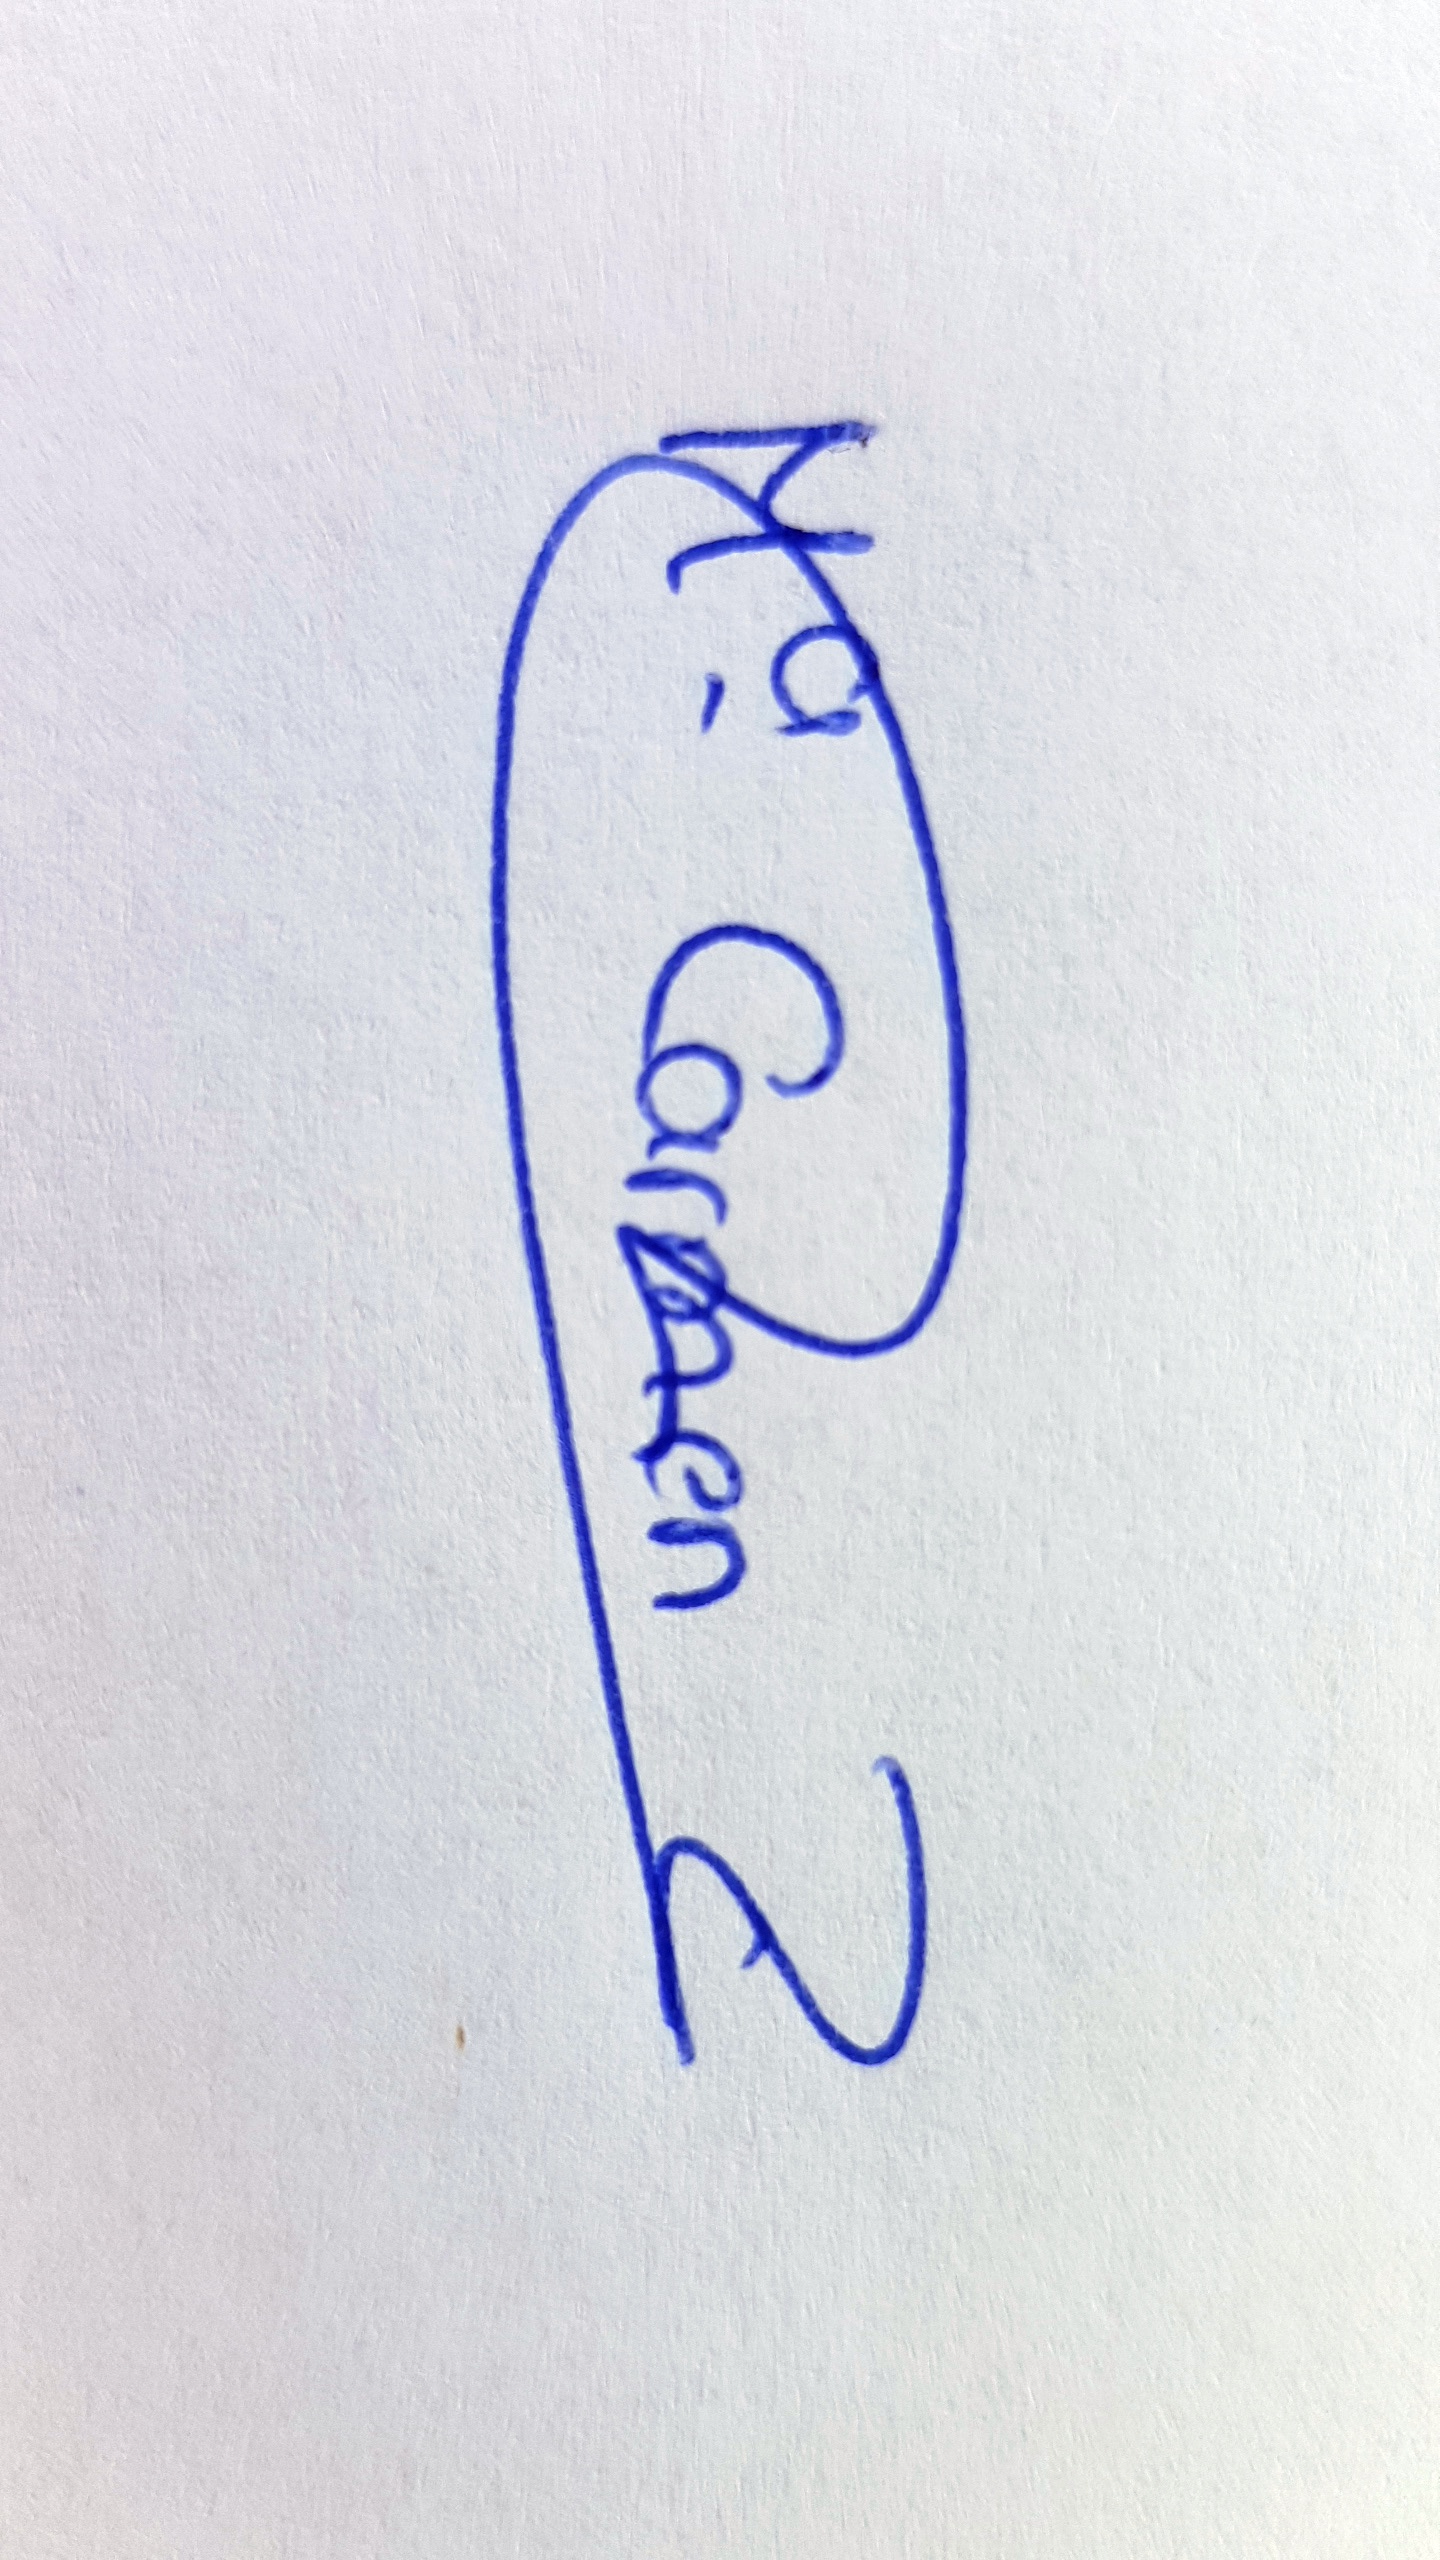 Mª Carmen